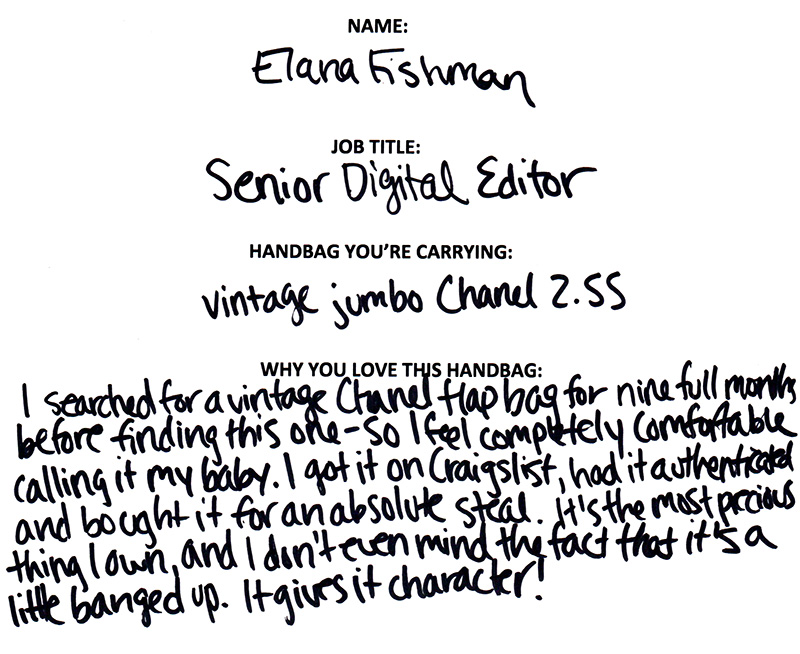 NAME:
Elana Fishman
JOB TITLE:
Senior Digital Editor
HANDBAG YOU'RE CARRYING:
vintage jumbo Chanel 2.55
WHY YOU LOVE THIS HANDBAG:
I searched for a vintage Chanel flap bag for nine full months
before finding this one - so I feel completely comfortable
calling it my baby. I got it on Craigslist, had it authenticated
and bought it for an absolute steal. It's the most precious
thing I own, and I don't even mind the fact that it's a
little banged up. It gives it character!